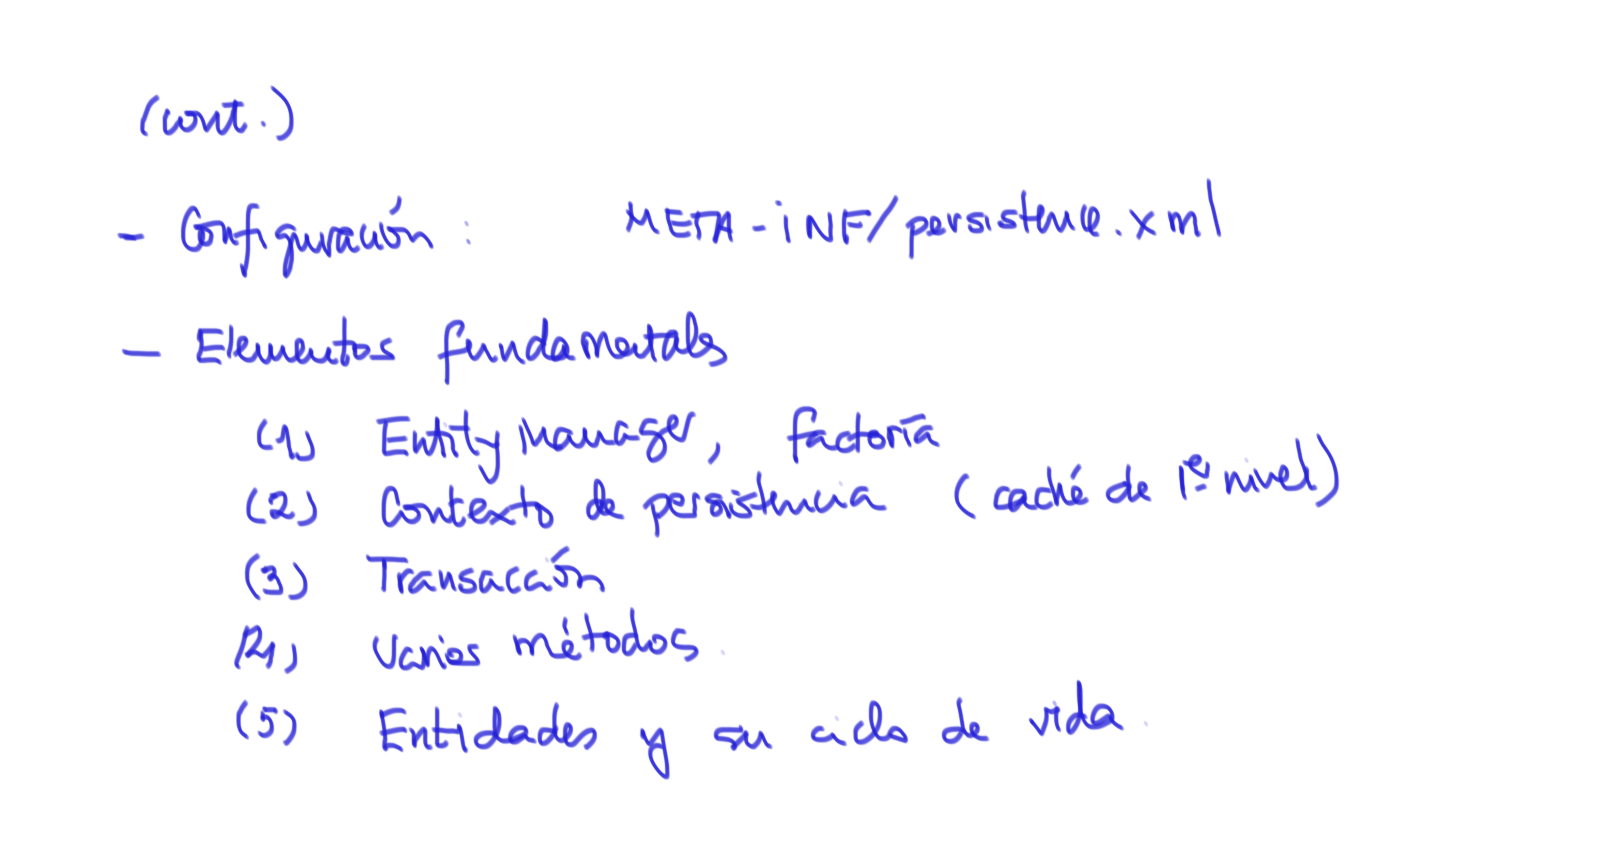 (cont.)
- Configuración : META-INF/persistence.xml
- Elementos fundamentales
(1) Entity Manager, factoría
(2) Contexto de persistencia (caché de 1er nivel)
(3) Transacción
(4) Varios métodos.
(5) Entidades y su ciclo de vida.